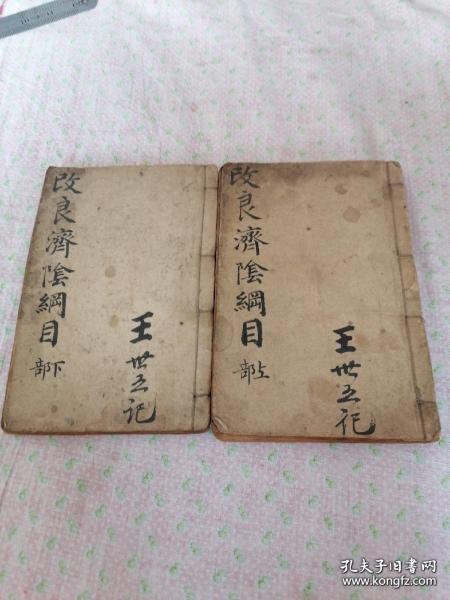 改良濟陰綱目
下部
王世五記
改良濟陰綱目
上部
王世五記
孔夫子旧书网
www.kongfz.com